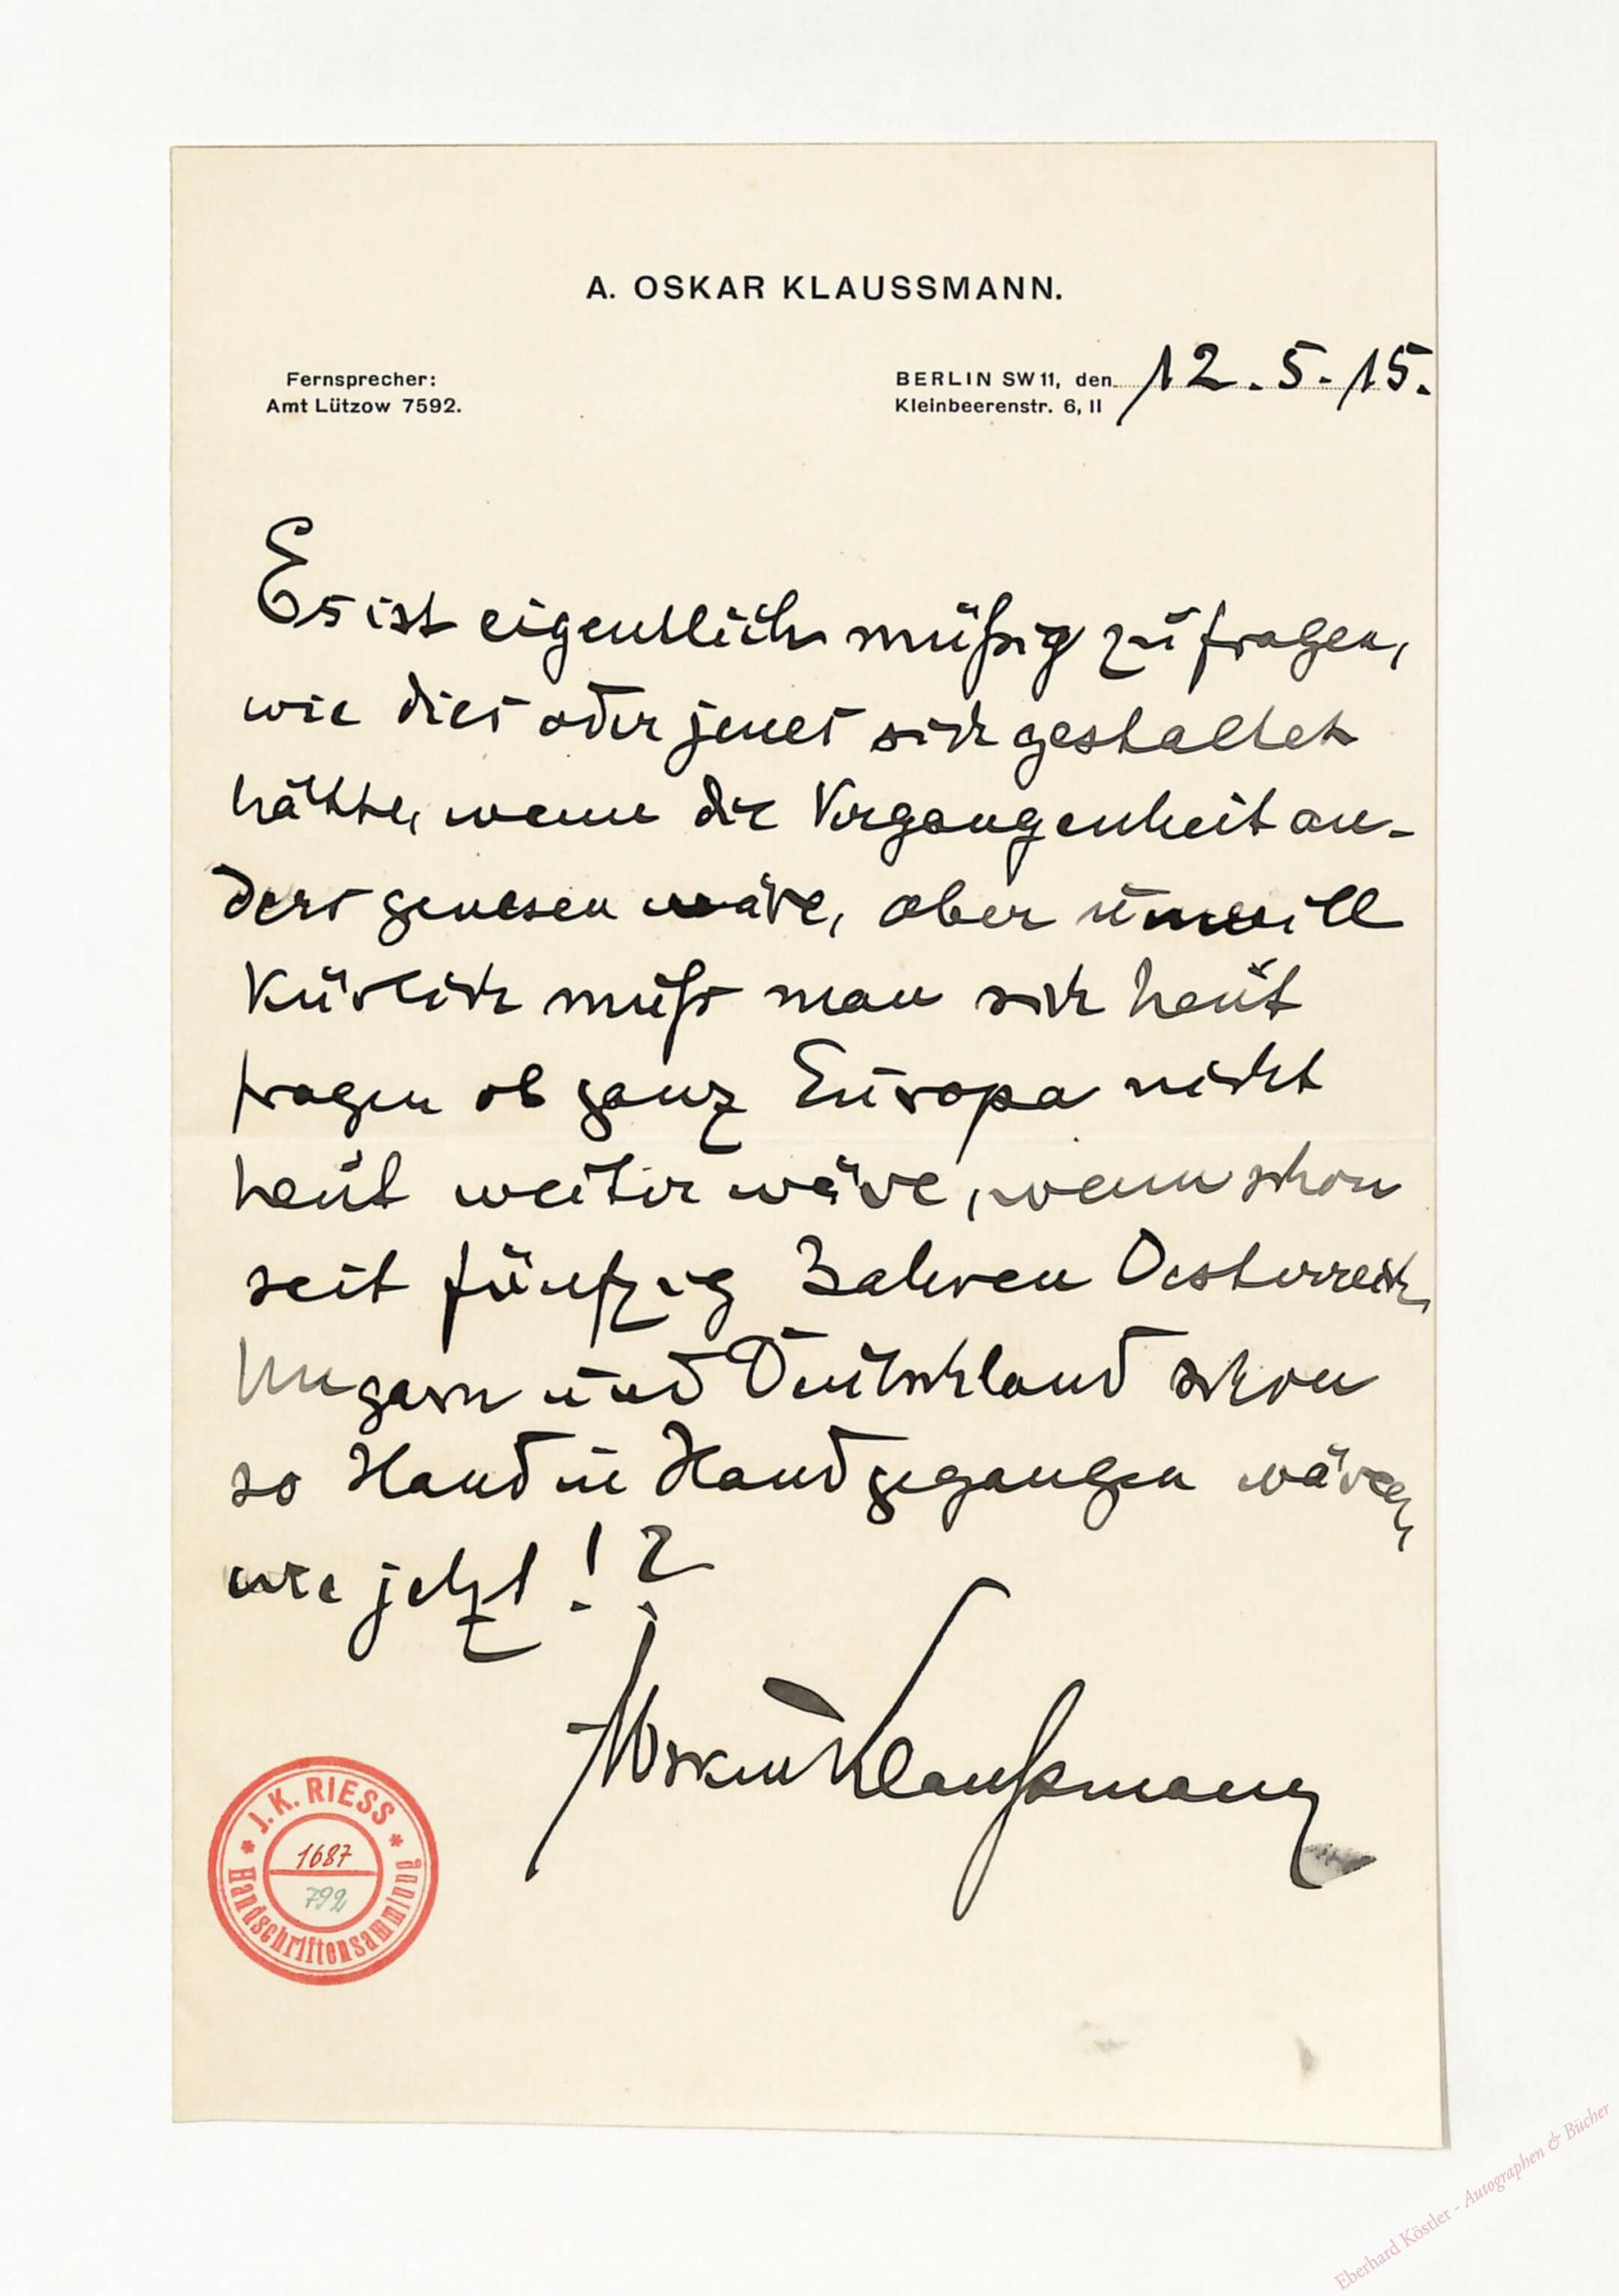 A. OSKAR KLAUSSMANN.
Fernsprecher:
Amt Lützow 7592.
BERLIN SW 11, den 12. 5. 15.
Kleinbeerenstr. 6, II
Es ist eigentlich müßig zu fragen,
wie dies oder jenes sich gestaltet
hätte, wenn die Vergangenheit an-
ders gewesen wäre, aber unwill
kürlich muß man sich heut
fragen ob ganz Europa nicht
heut weiter wäre, wenn schon
seit fünfzig Jahren Oesterreich
Ungarn und Deutschland schon
so Hand in Hand gegangen wären,
wie jetzt!?
AOskar Klaußmann
* J. K. RIESS *
1687
792
Handschriftensammlung
Eberhard Köstler - Autographen & Bücher